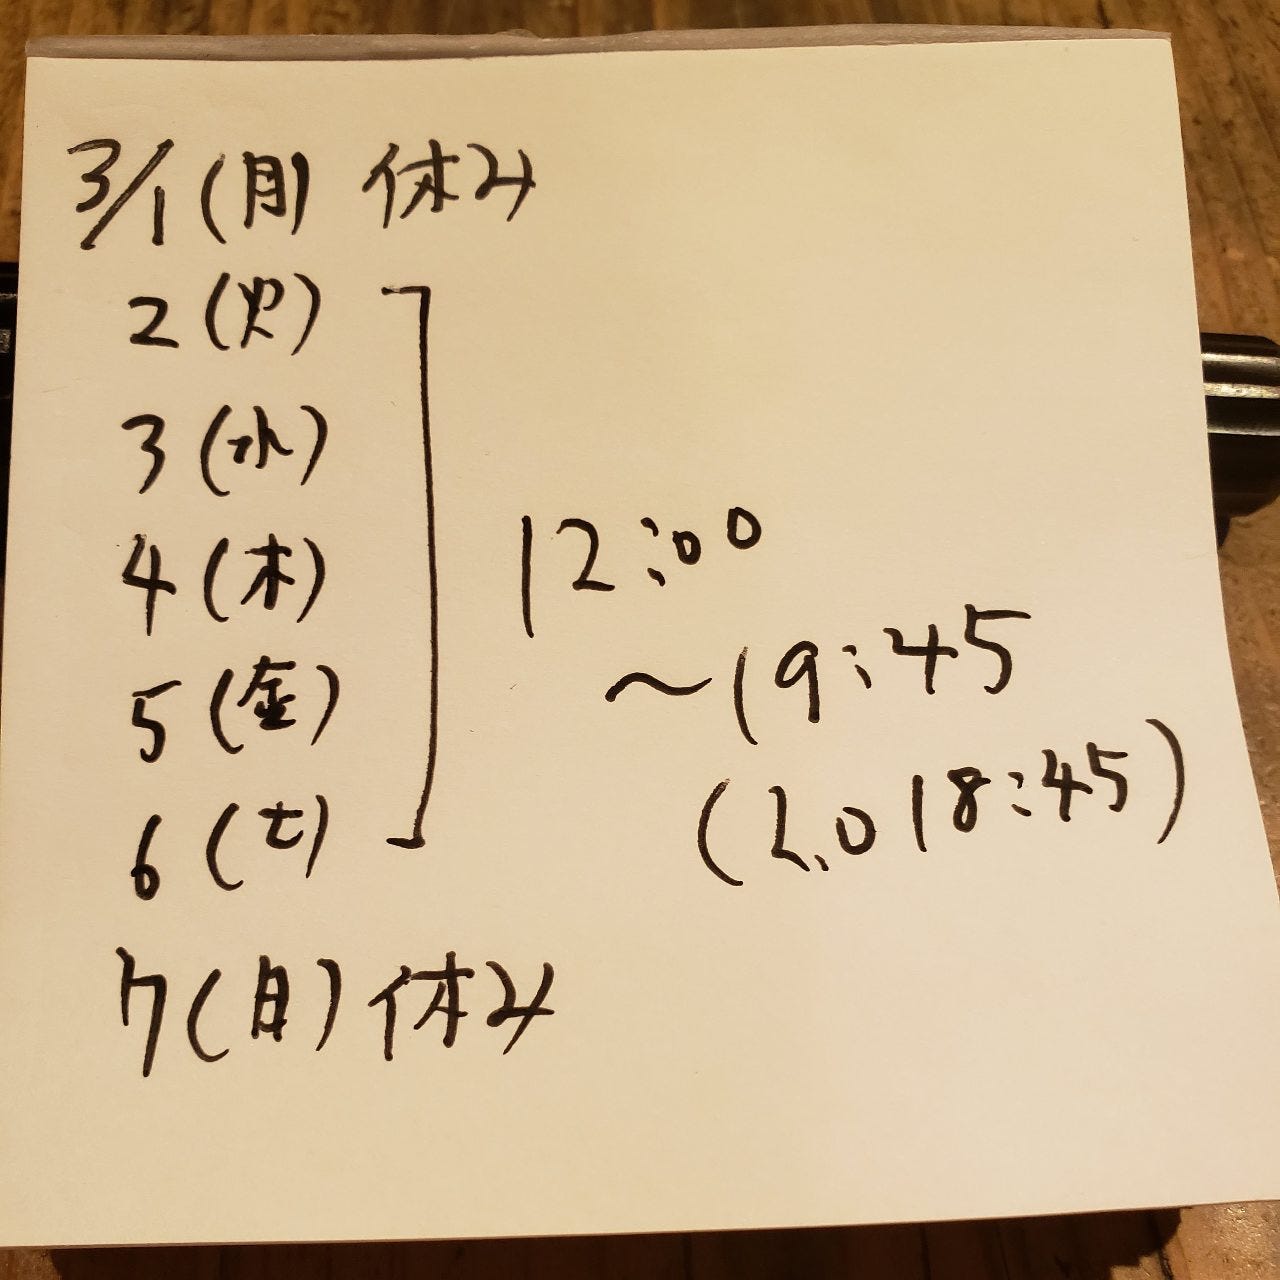 3/1(月) 休み
2(火)
3(水)
4(木)
5(金)
6(土)
12:00
～19:45
(L.O 18:45)
7(日)休み